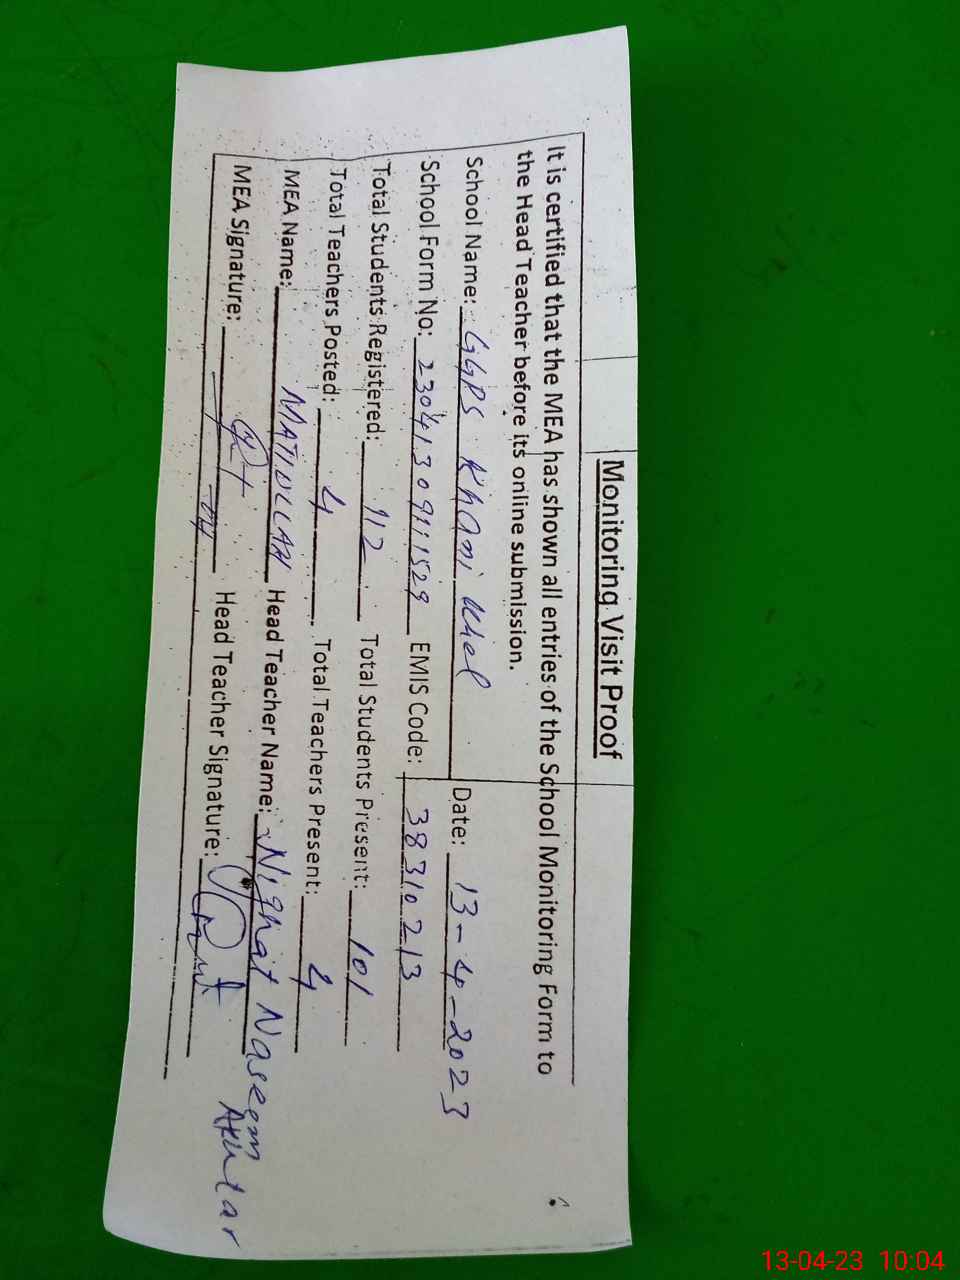 Monitoring Visit Proof
It is certified that the MEA has shown all entries of the School Monitoring Form to
the Head Teacher before its online submission.
School Name: GGPS Khani Khel Date: 13-4-2023
School Form No: 23041309111529 EMIS Code: 38310213
Total Students Registered: 112 Total Students Present: 101
Total Teachers Posted: 4 Total Teachers Present: 4
MEA Name: MATIULLAH Head Teacher Name: Nighat Naseem
Akhtar
MEA Signature: Head Teacher Signature:
13-04-23 10:04